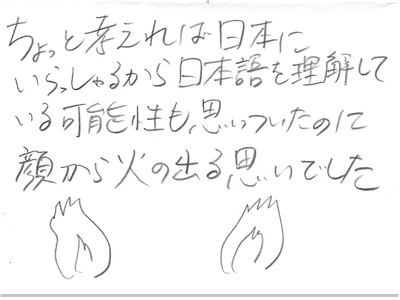 ちょっと考えれば日本に
いらっしゃるから日本語を理解して
いる可能性も思いついたのに
顔から火の出る思いでした